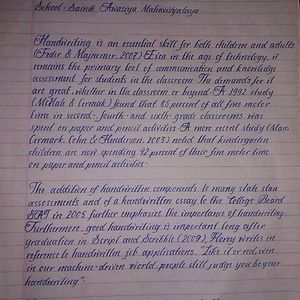 School:- Sainik Awasiya Mahavidyalaya
Handwriting is an essential skill for both children and adults
(Feder & Majnemer, 2007) Even in the age of technology, it
remains the primary tool of communication and knowledge
assessment for students in the classroom. The demands for it
are great, whether in the classroom or beyond. A 1992 study
(McHale & Cermak) found that 85 percent of all fine motor
time in second-, fourth- and sixth-grade classrooms was
spent on paper and pencil activities. A more recent study (Marr,
Cermark, Cohn & Henderson, 2003) noted that kindergarten
children are now spending 42 percent of their fine motor time
on paper and pencil activities.
The addition of handwritten components to many state stan
assessments and of a handwritten essay to the College Board
SAT in 2005 further emphasize the importance of handwriting.
Furthermore, good handwriting is important long after
graduation in Script and Scribble (2009), Florey writes in
reference to handwritten job applications, "Like it or not, even
in our machine-driven world, people still judge you by your
handwriting."